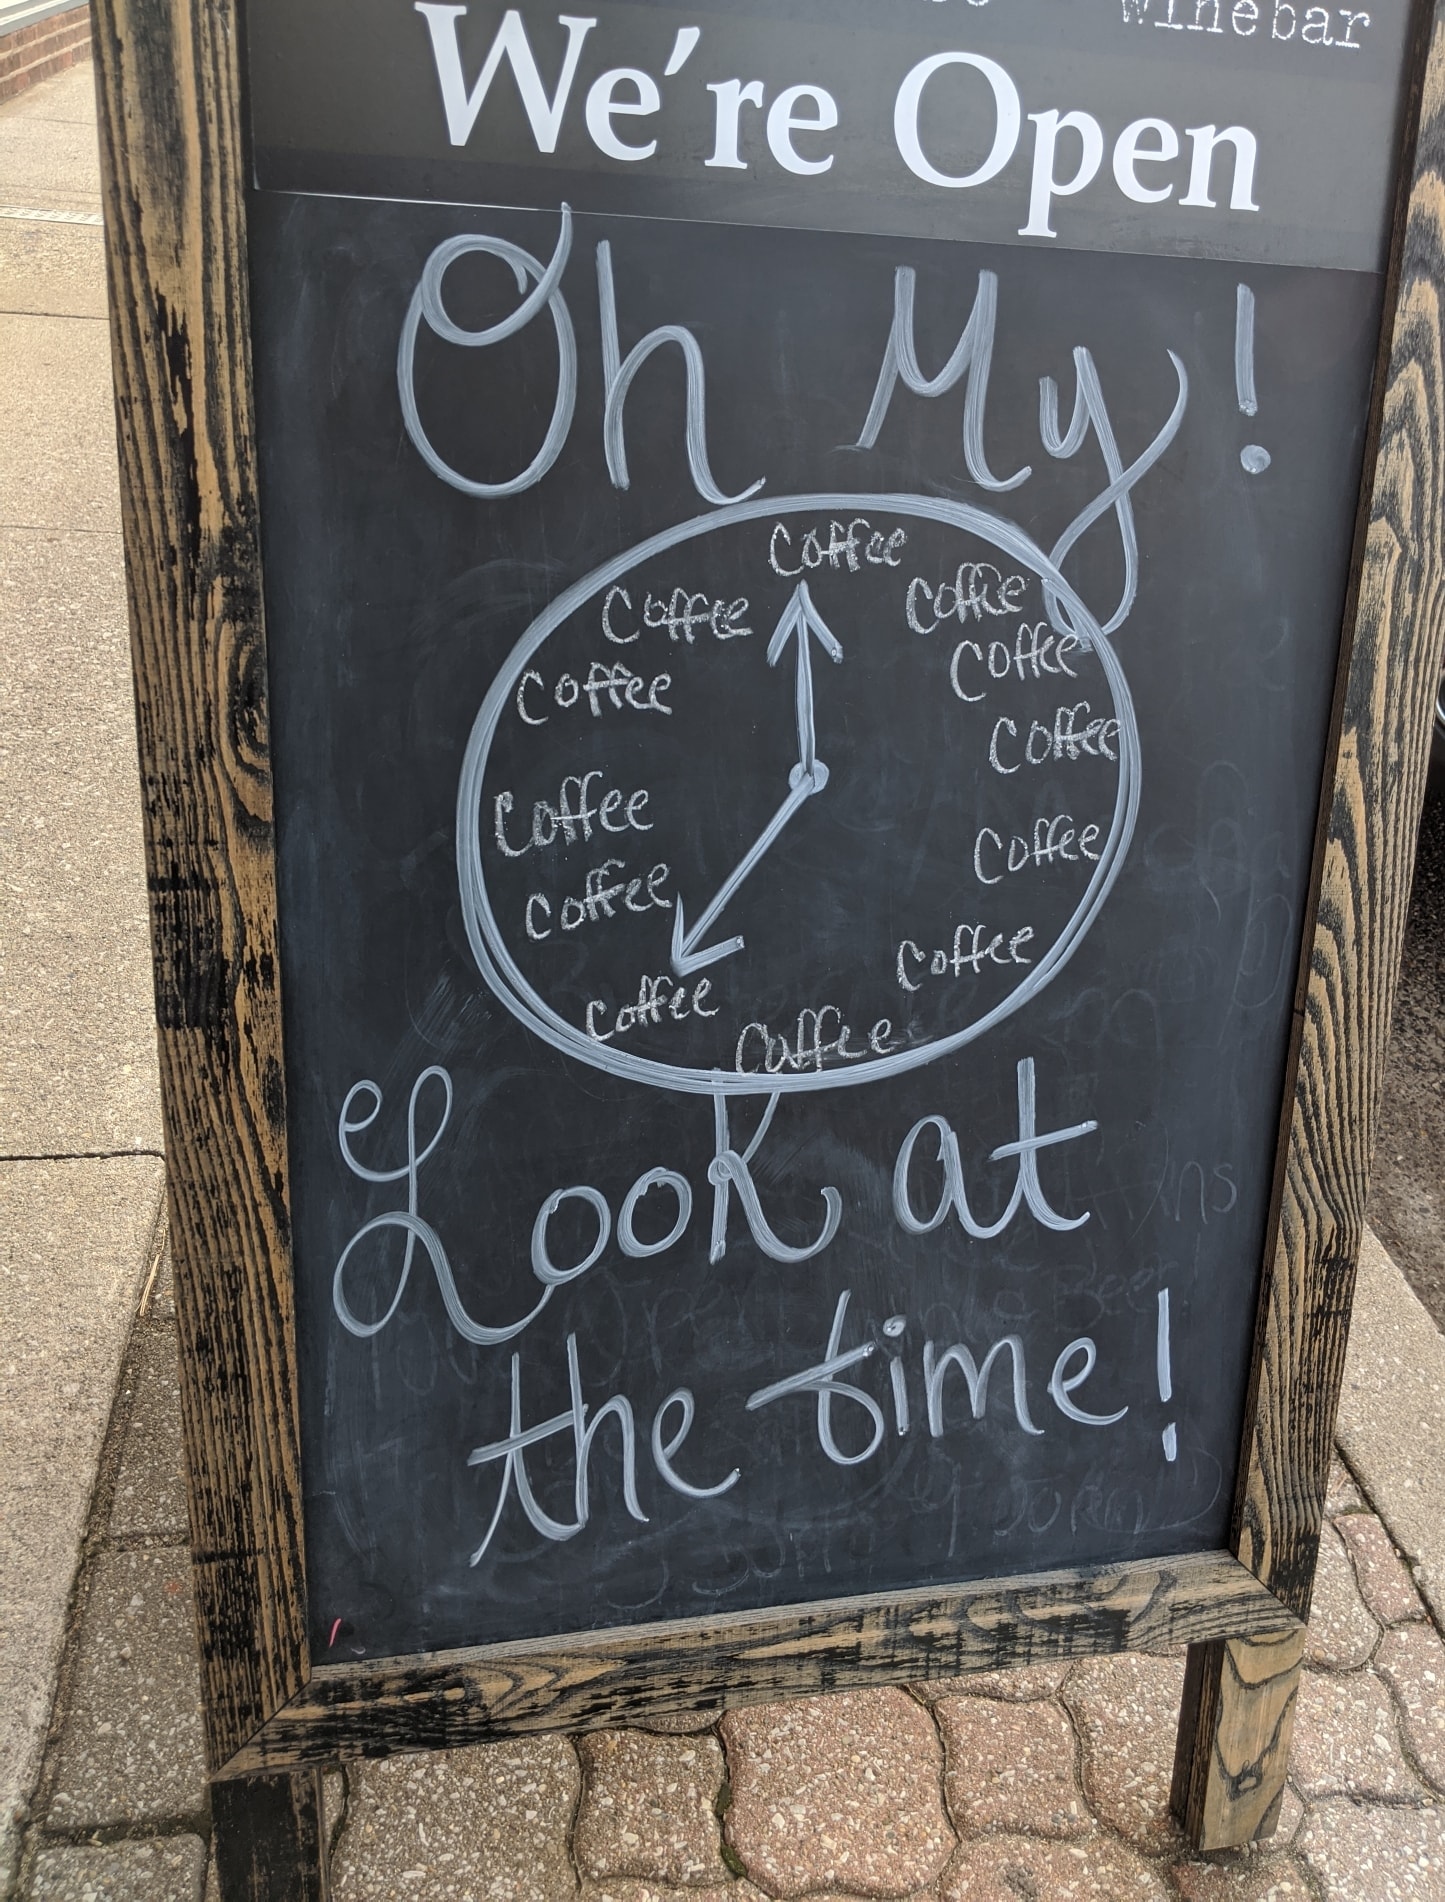 winebar
We're Open
Oh My!
Coffee
Coffee
Coffee
Coffee
Coffee
Coffee
Coffee
Coffee
Coffee
Coffee
Coffee
Coffee
Look at
the time!